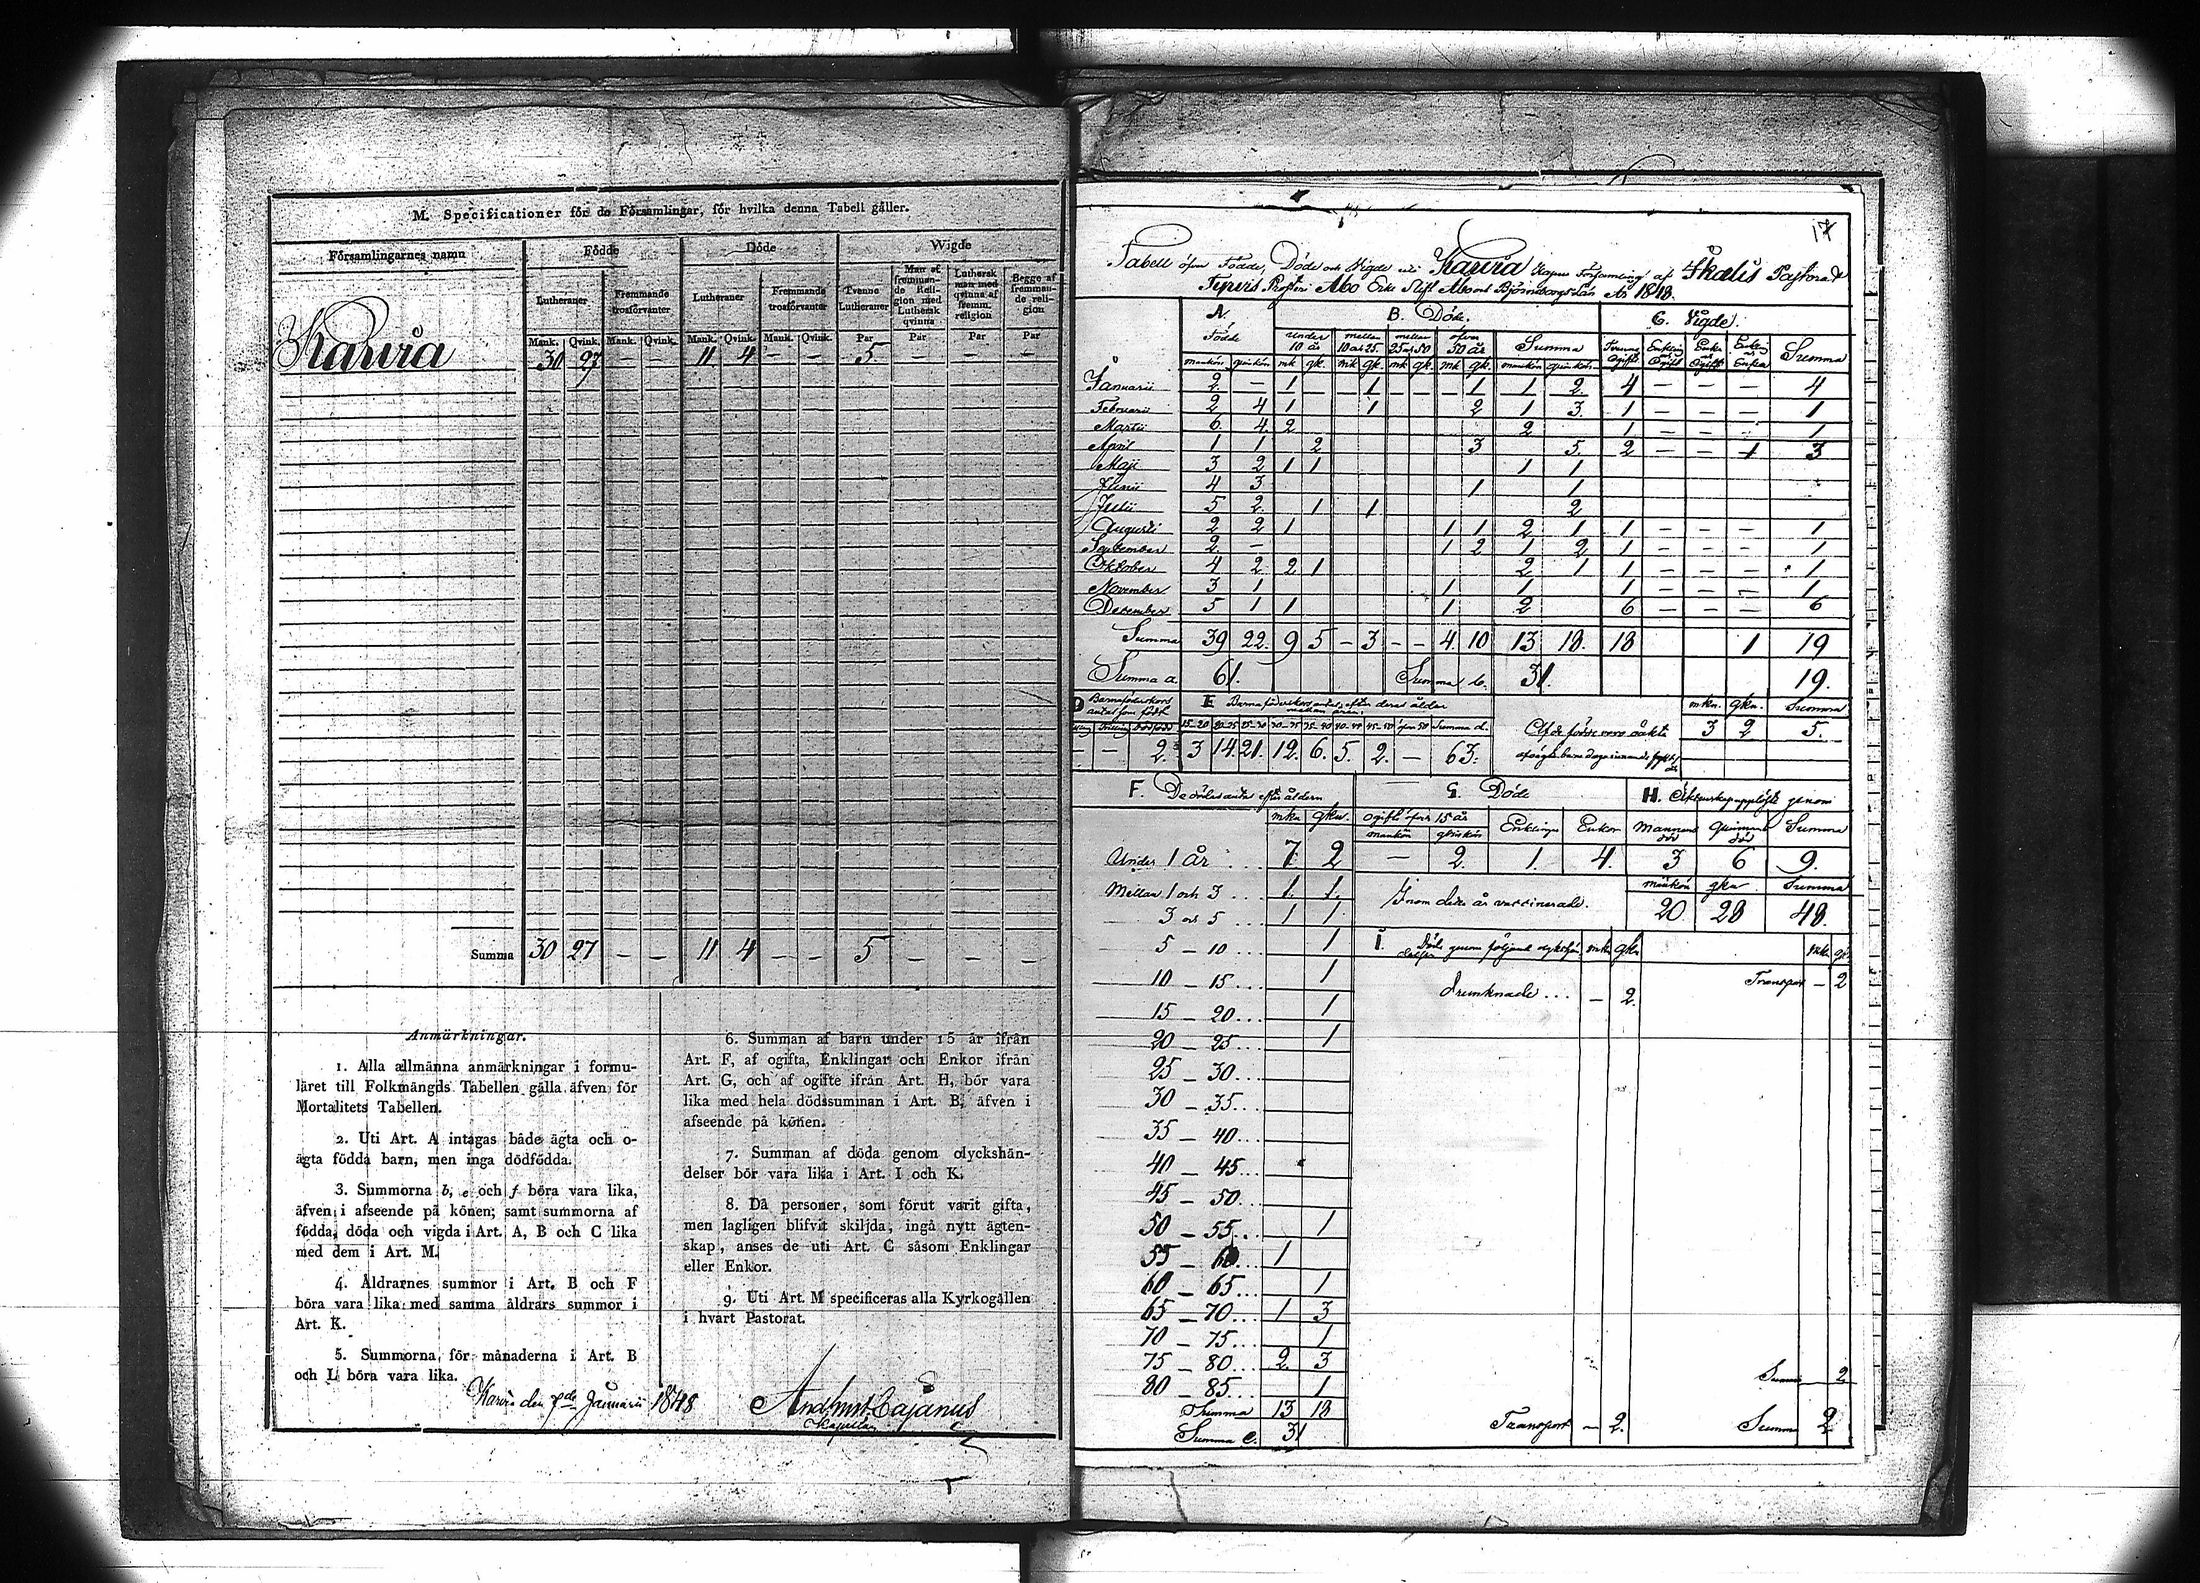 M. Specificationer för de Församlingar, för hvilka denna Tabell gäller.
Församlingarnes namn Födde Döde Wigde
Lutheraner Fremmande trosförvanter Lutheraner Fremmande trosförvanter Tvenne Lutheraner Man af fremmande Religion med Luthersk qvinna Luthersk man med qvinna af fremm. religion Begge af fremmande religion
Mank. Qvink. Mank. Qvink. Mank. Qvink. Mank. Qvink. Par Par Par Par
Karvia 30 27 — — 11 4 — — 5 — — —
Summa 30 27 — — 11 4 — — 5 — — —
Anmärkningar.
1. Alla allmänna anmärkningar i formu-
läret till Folkmängds Tabellen gälla äfven för
Mortalitets Tabellen.
2. Uti Art. A intagas både ägta och o-
ägta födda barn, men inga dödfödda.
3. Summorna b, e och f böra vara lika,
äfven i afseende på könen; samt summorna af
födda, döda och vigda i Art. A, B och C lika
med dem i Art. M.
4. Åldrarnes summor i Art. B och F
böra vara lika med samma åldrars summor i
Art. K.
5. Summorna för månaderna i Art. B
och L böra vara lika.
6. Summan af barn under 15 år ifrån
Art. F, af ogifta, Enklingar och Enkor ifrån
Art. G, och af ogifte ifrån Art. H, bör vara
lika med hela dödssumman i Art. B, äfven i
afseende på könen.
7. Summan af döda genom olyckshän-
delser bör vara lika i Art. I och K.
8. Då personer, som förut varit gifta,
men lagligen blifvit skiljda, ingå nytt ägten-
skap, anses de uti Art. C såsom Enklingar
eller Enkor.
9. Uti Art. M specificeras alla Kyrkogällen
i hvart Pastorat.
Karvia den 7de Januarii 1848
Cajanus
Kapellan
17
Tabell öfver Födde, Döde och Vigde uti Karvia Kapells Församling af Ikalis Pastorat
Prosteri Åbo Erke Stift Åbo och Björneborgs Län År 1848.
A. Födde B. Döde. C. Vigde.
under 10 år mellan 10 a 25. mellan 25 a 50 öfver 50 år Summa Tvenne Ogifte Enkling och Ogift Enka och Ogift Enkling och Enka Summa
mankön qvinkön mk qk. mk qk. mk qk. mk qk. mankön qvinkön
Januarii 2 — 1 1 — — — 1 1 2. 4 — — — 4
Februarii 2 4 1 1 2 1 3. 1 — — — 1
Martii 6. 4. 2 2 1 — — — 1
April 1 1 2 3 5. 2 — — 1 3
Maji 3 2 1 1 1 1
Junii 4 3 1 1
Julii 5 2. 1 1 2
Augusti 2 2 1 1 1 2 1 1 — — — 1
September 2. — 1 2 1 2 1 — — — 1
Oktober 4 2 2 1 2 1 1 — — — 1
November 3 1 1 1 1 — — — 1
December 5 1 1 1 2 6 — — — 6
Summa 39 22. 9 5 — 3 — — 4 10 13 18. 18 1 19
Summa a 61. Summa b. 31. 19.
D Barnaföderskors antal som födt E Barnaföderskors antal efter deras ålder mellan åren.
15-20 20-25 25-30 30-35 35-40 40-45 45-50 öfver 50 Summa d.
— — 2. 3 14 21. 12. 6. 5. 2. — 63.
Af de födde voro oäkta
mkn. qkn. Summa
3 2 5.
F. De dödas antal efter åldern
mkn qkn.
Under 1 år . . . 7 2
Mellan 1 och 3 . . . 1. 1.
3 och 5 . . . 1 1
5 — 10 . . . 1
10 — 15 . . . 1
15 — 20 . . . 1
20 — 25 . . . 1
25 — 30 . . .
30 — 35 . . .
35 — 40 . . .
40 — 45 . . .
45 — 50 . . .
50 — 55 . . . 1
55 — 60 1
60 — 65 . . . 1
65 — 70 . . . 1 3
70 — 75 . . . 1
75 — 80 . . . 2. 3
80 — 85 . . . 1
Summa 13 18
Summa e. 31
G. Döde
ogift öfver 15 år Enklingar Enkor
mankön qvinkön
— 2. 1. 4.
H. Äktenskap upplöste genom
Mannens död Qvinnans död Summa
3 6 9.
Inom detta år vaccinerade.
mankön qkn Summa
20 28 48.
I. Döde genom följande olyckshändelser mkn qkn mkn qk.
drunknade . . . — 2. Transport — 2
Summa 2
Transport — 2. Summa 2